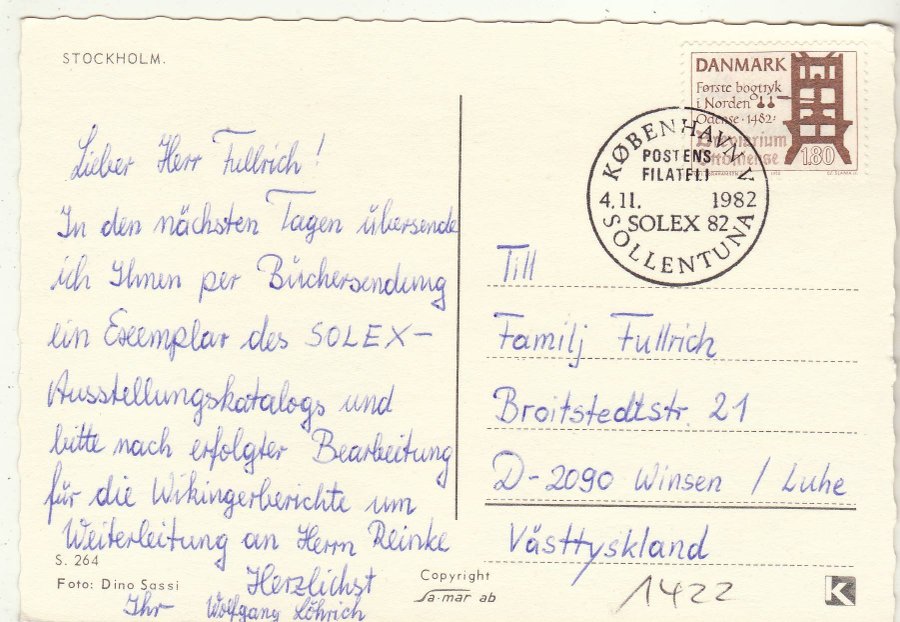 STOCKHOLM.
Lieber Herr Fullrich!
In den nächsten Tagen übersende
ich Ihnen per Büchersendung
ein Exemplar des SOLEX-
Ausstellungskatalogs und
bitte nach erfolgter Bearbeitung
für die Wikingerberichte um
Weiterleitung an Herrn Reinke
Herzlichst
Ihr Wolfgang Löhrich
S. 264
Foto: Dino Sassi
Copyright
Sa-mar ab
DANMARK
Første bogtryk
i Norden
Odense · 1482:
Breviarium
Ottoniense
180
KØBENHAVN V
POSTENS
FILATELI
4.11. 1982
SOLEX 82
SOLLENTUNA
Till
Familj Fullrich
Broitstedtstr. 21
D-2090 Winsen / Luhe
Västtyskland
1422
K